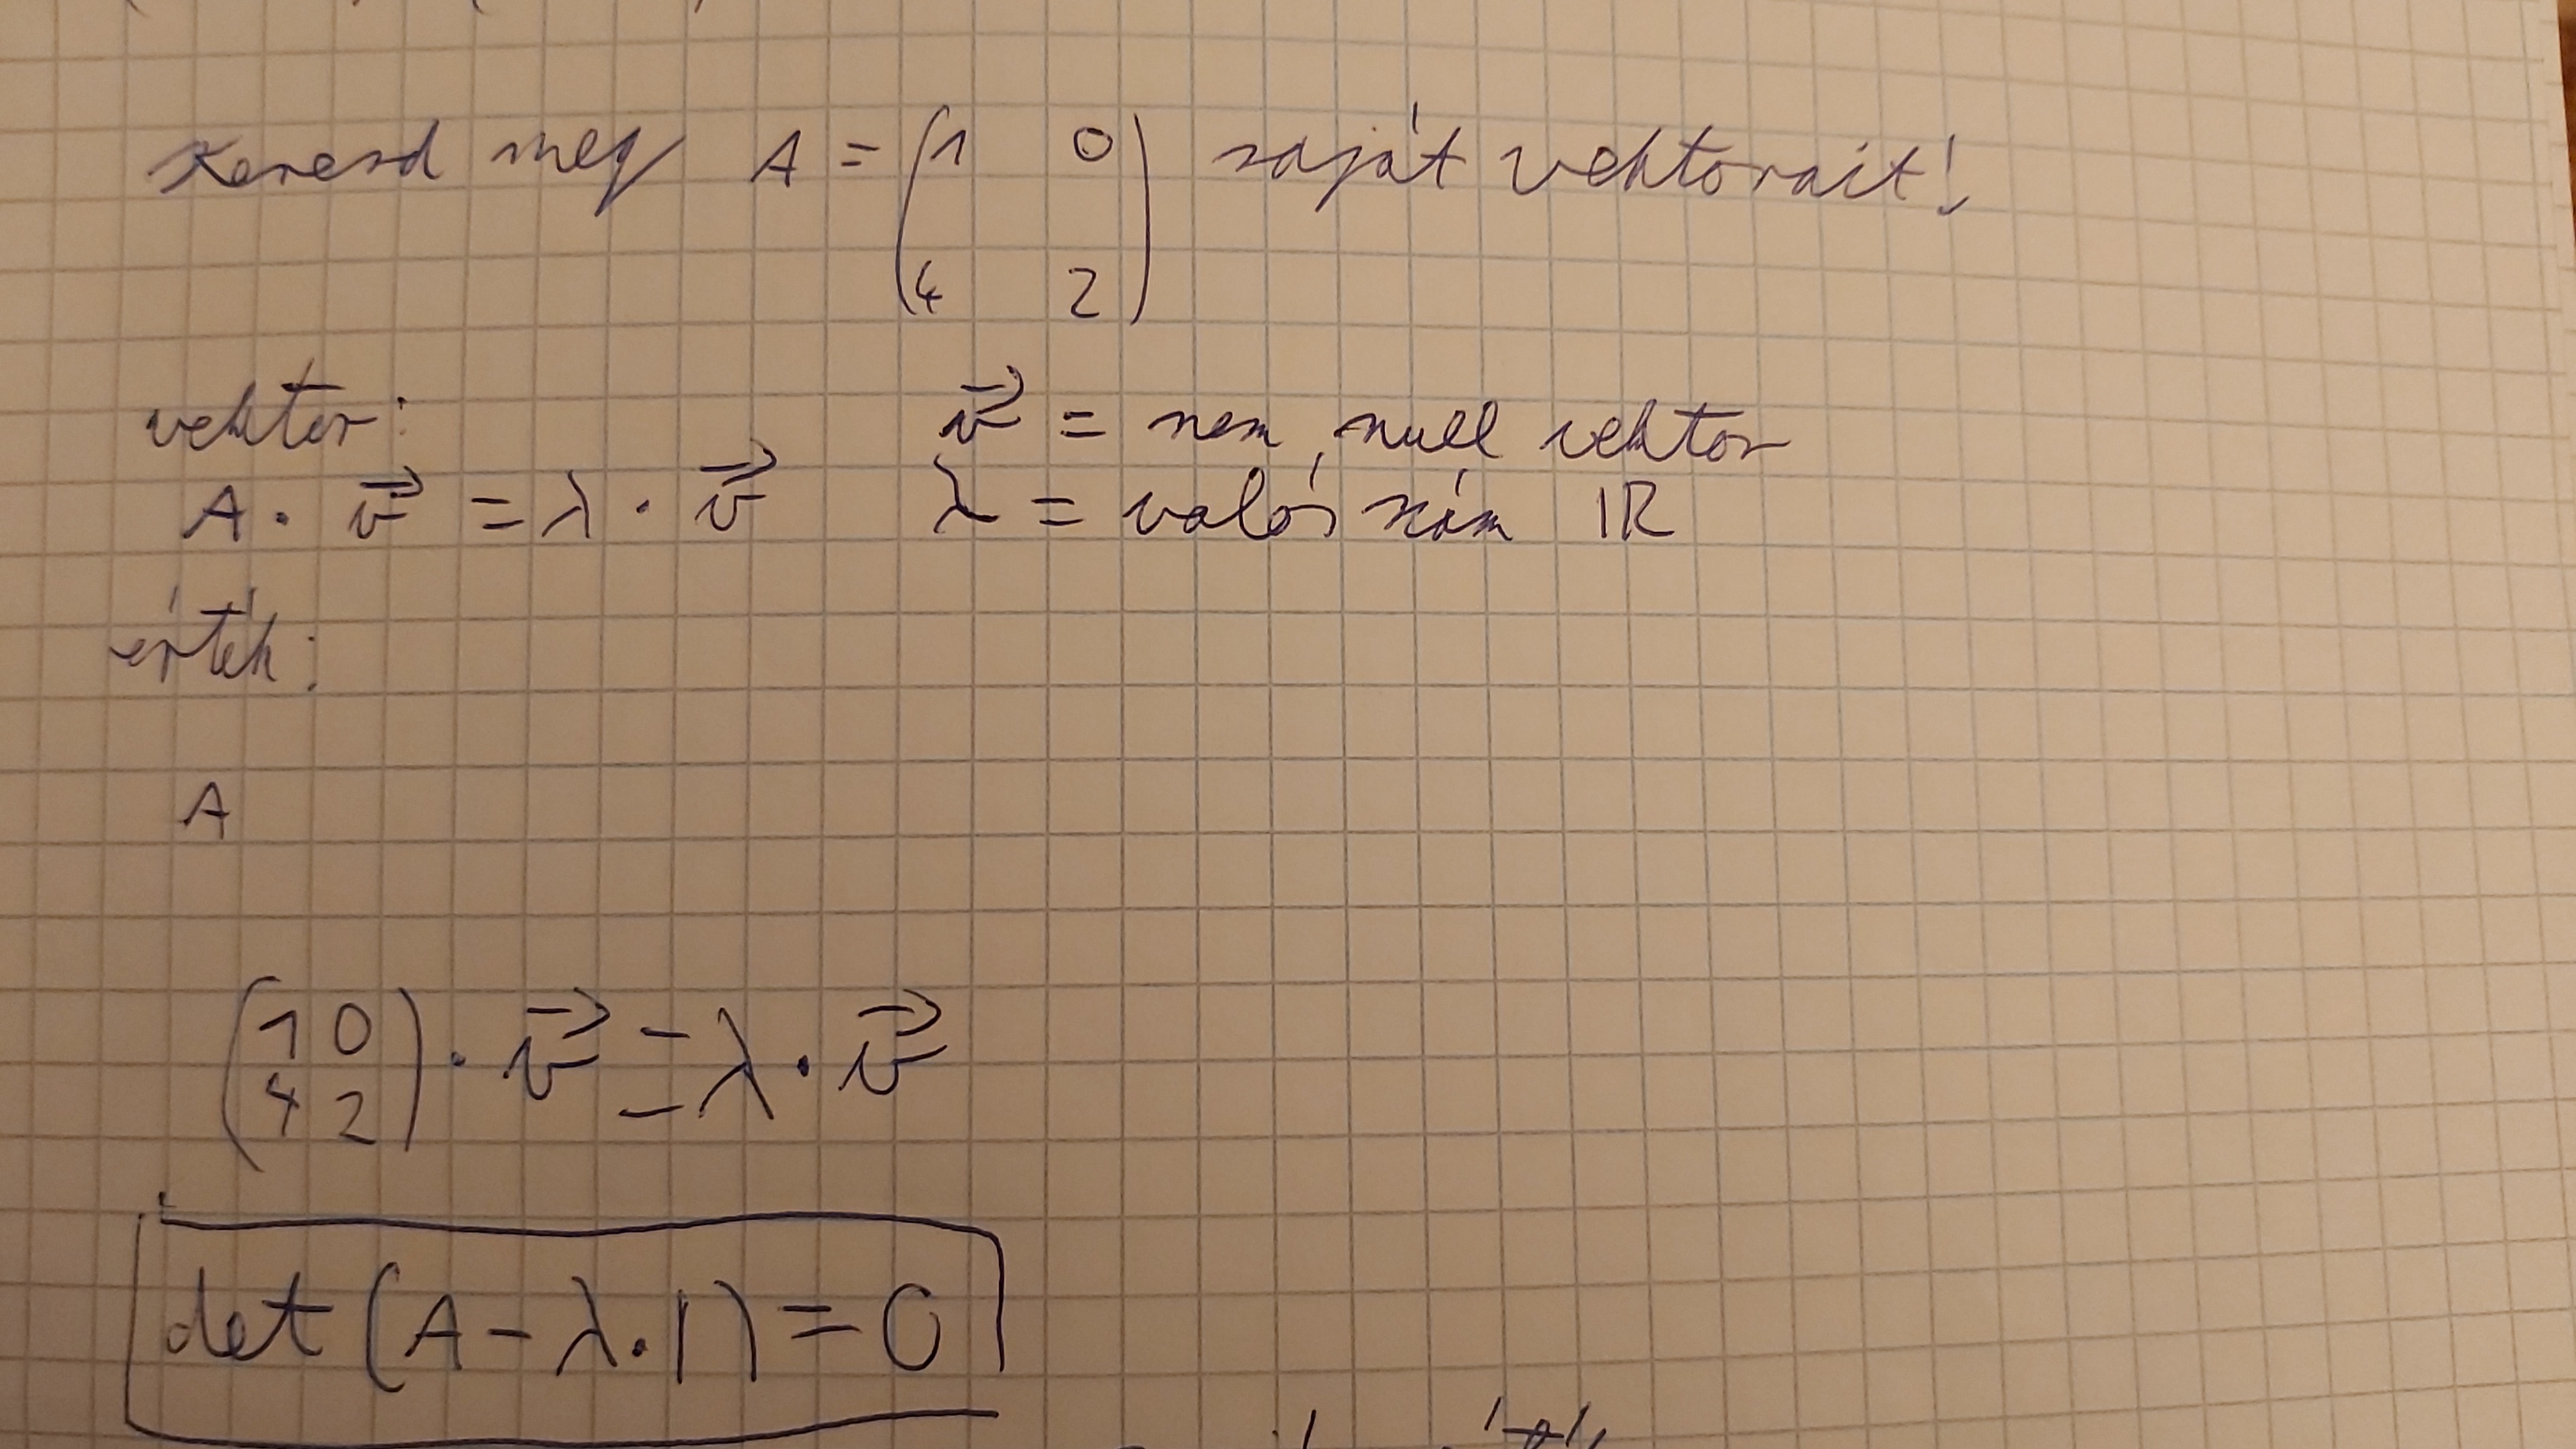 Keresd meg A = (1 0
4 2) saját vektorait!
vektor:
v⃗ = nem null vektor
A · v⃗ = λ · v⃗
λ = valós szám ℝ
érték:
A
(1 0
4 2) · v⃗ = λ · v⃗
det (A - λ · I) = 0